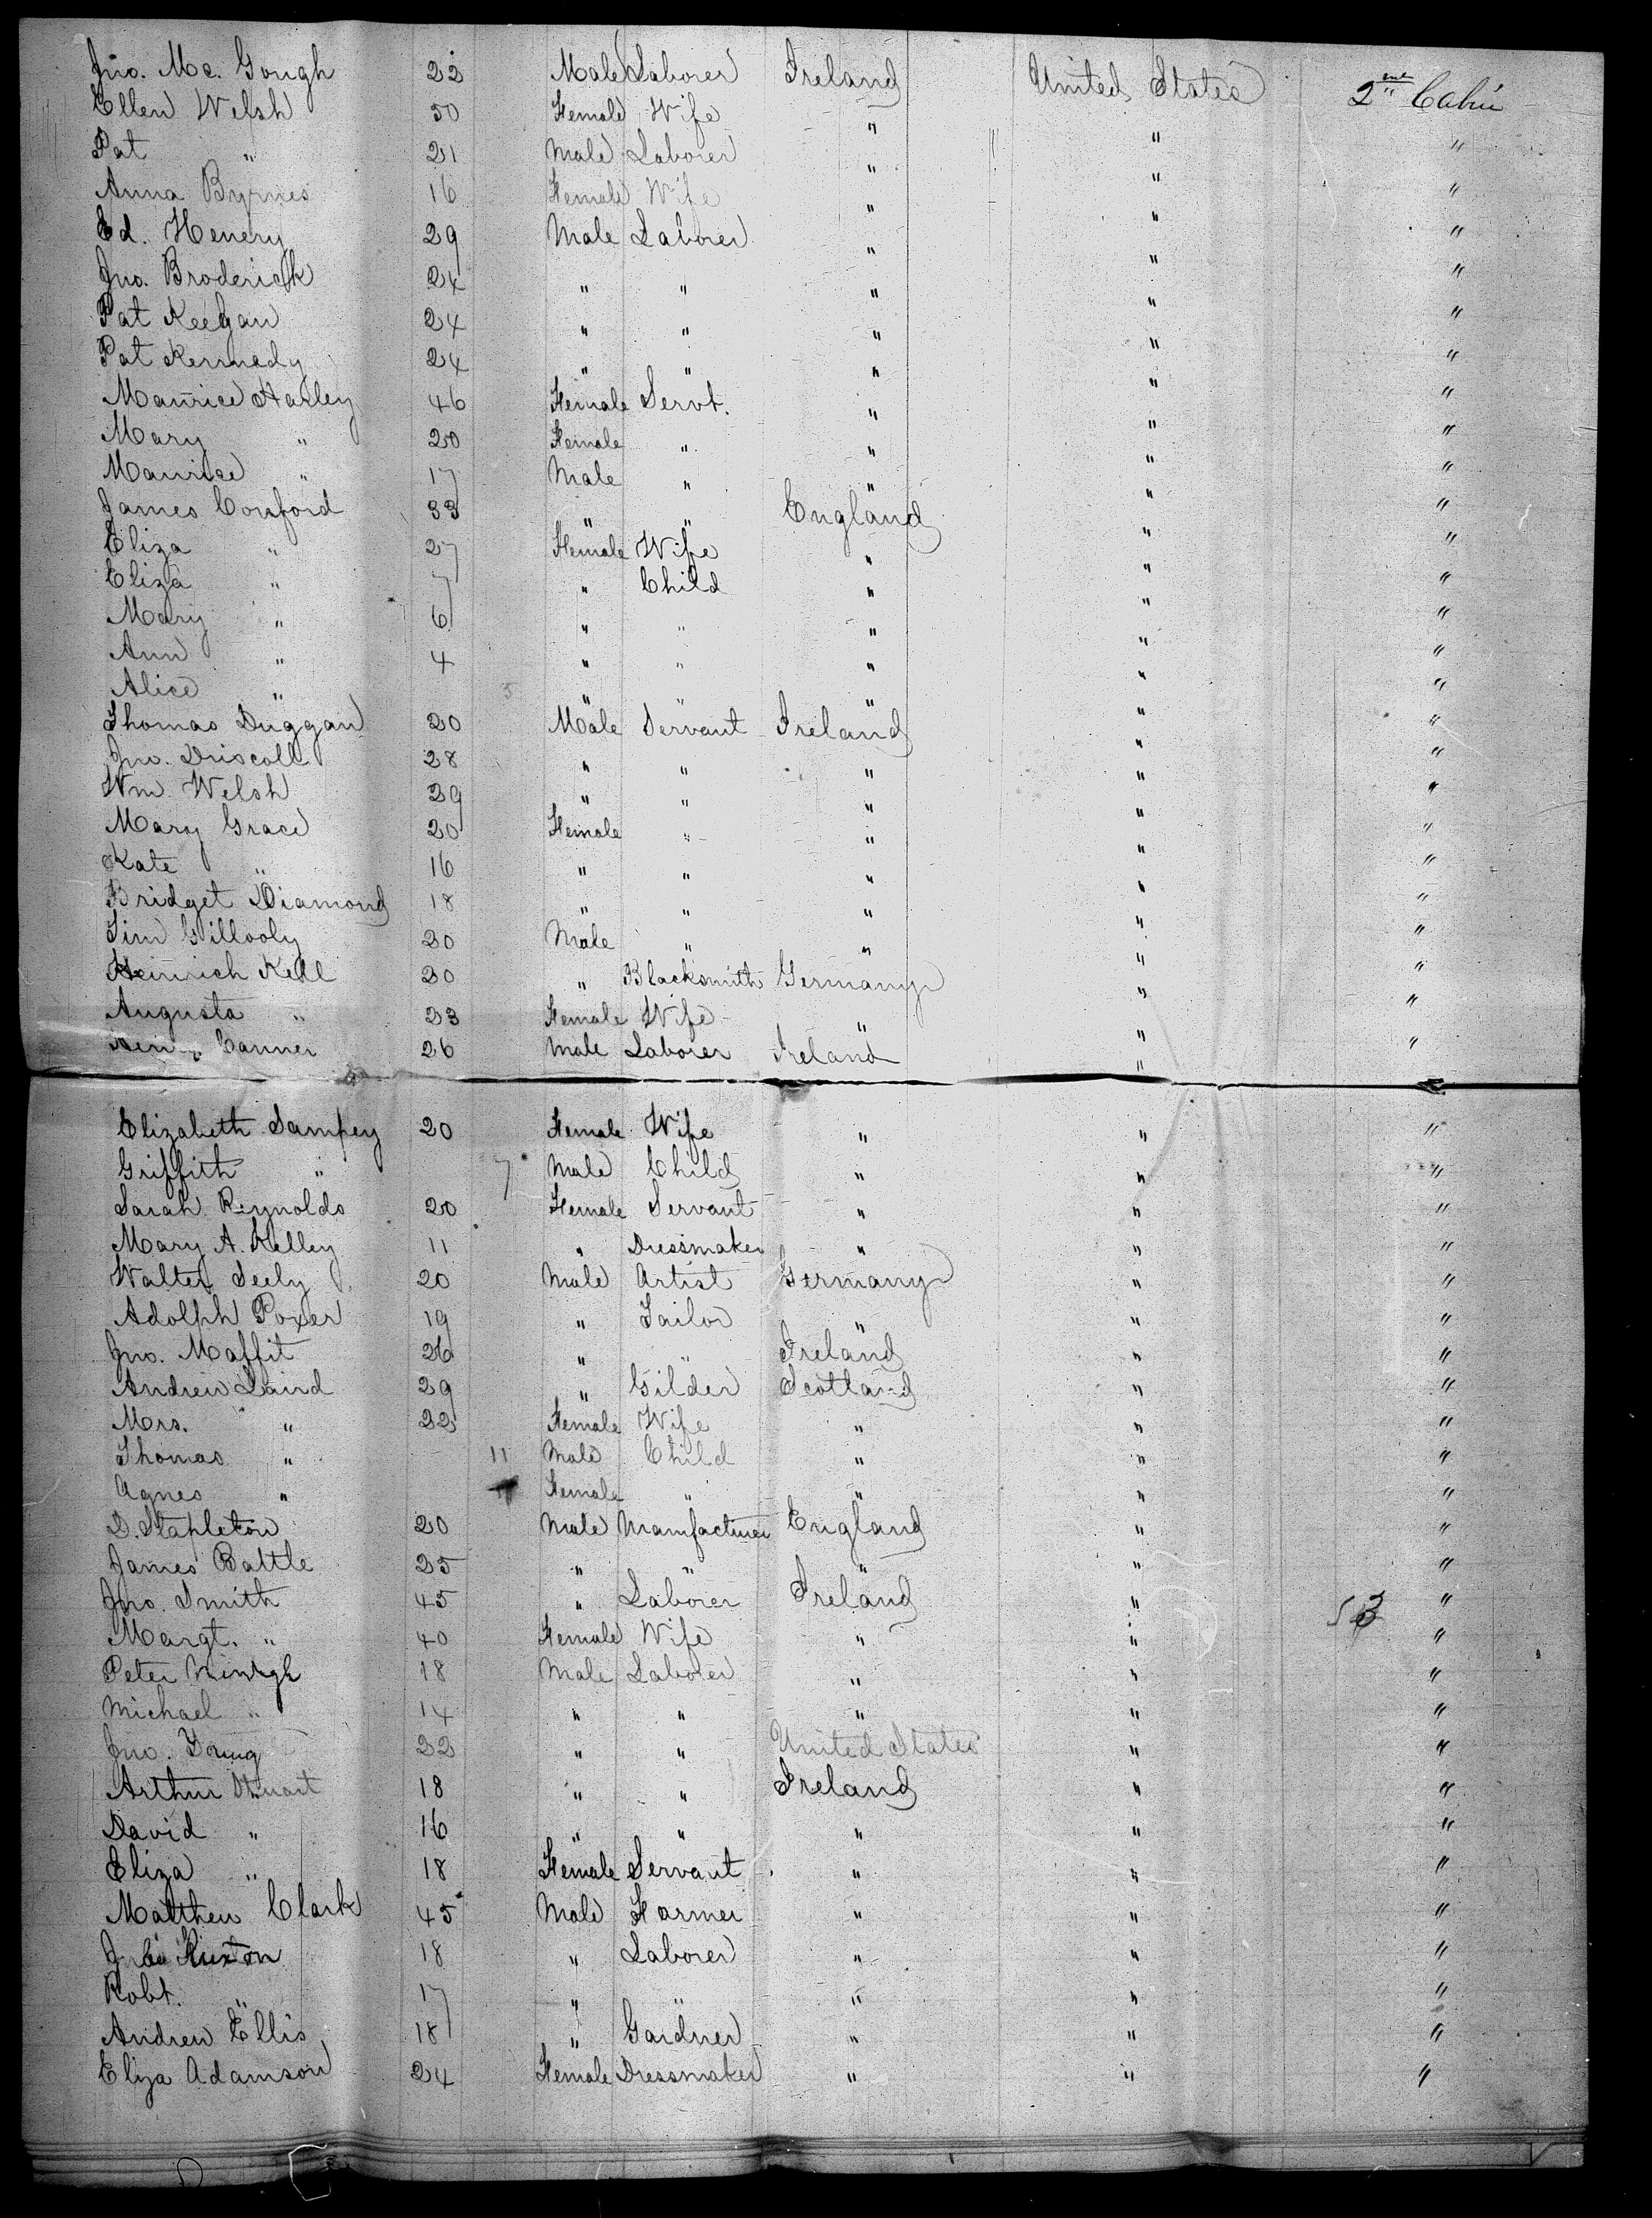 Jno. Mc. Gough 22 Male Laborer Ireland United States 2nd Cabin
Ellen Welsh 50 Female Wife " " "
Pat " 21 Male Laborer " " "
Anna Byrnes 16 Female Wife " " "
Ed. Henery 29 Male Laborer " " "
Jno. Broderick 24 " " " " "
Pat Keegan 24 " " " " "
Pat Kennedy 24 " " " " "
Maurice Harley 46 Female Servt. " " "
Mary " 20 Female " " " "
Maurice " 17 Male " " " "
James Conford 33 " " England " "
Eliza " 27 Female Wife " " "
Eliza " 7 " Child " " "
Mary " 6 " " " " "
Ann " 4 " " " " "
Alice " " " " " "
Thomas Duggan 20 Male Servant Ireland " "
Jno. Driscoll 28 " " " " "
Wm. Welsh 29 " " " " "
Mary Grace 20 Female " " " "
Kate " 16 " " " " "
Bridget Diamond 18 " " " " "
Tim Gillooly 30 Male " " " "
Heinrich Kell 30 " Blacksmith Germany " "
Augusta " 23 Female Wife " " "
26 Male Laborer Ireland " "
Elizabeth Sampey 20 Female Wife " " "
Griffith " 7 Male Child " " "
Sarah Reynolds 20 Female Servant " " "
Mary A. Kelley 11 " Dressmaker " " "
Walter Seely 20 Male Artist Germany " "
Adolph Poxer 19 " Tailor " " "
Jno. Maffit 26 " " Ireland " "
Andrew Laird 29 " Gilder Scotland " "
Mrs. " 22 Female Wife " " "
Thomas " 11 Male Child " " "
Agnes " Female " " " "
D. Stapleton 20 Male Manfacturer England " "
James Battle 25 " " " " "
Jno. Smith 45 " Laborer Ireland " "
Margt. " 40 Female Wife " " "
Peter 18 Male Laborer " " "
Michael " 14 " " " " "
Jno. Young 22 " " United States " "
Arthur Stuart 18 " " Ireland " "
David " 16 " " " " "
Eliza " 18 Female Servant " " "
Matthew Clark 45 Male Farmer " " "
Ruxton 18 " Laborer " " "
Robt. " 17 " " " " "
Andrew Ellis 18 " Gardner " " "
Eliza Adamson 24 Female Dressmaker " " "